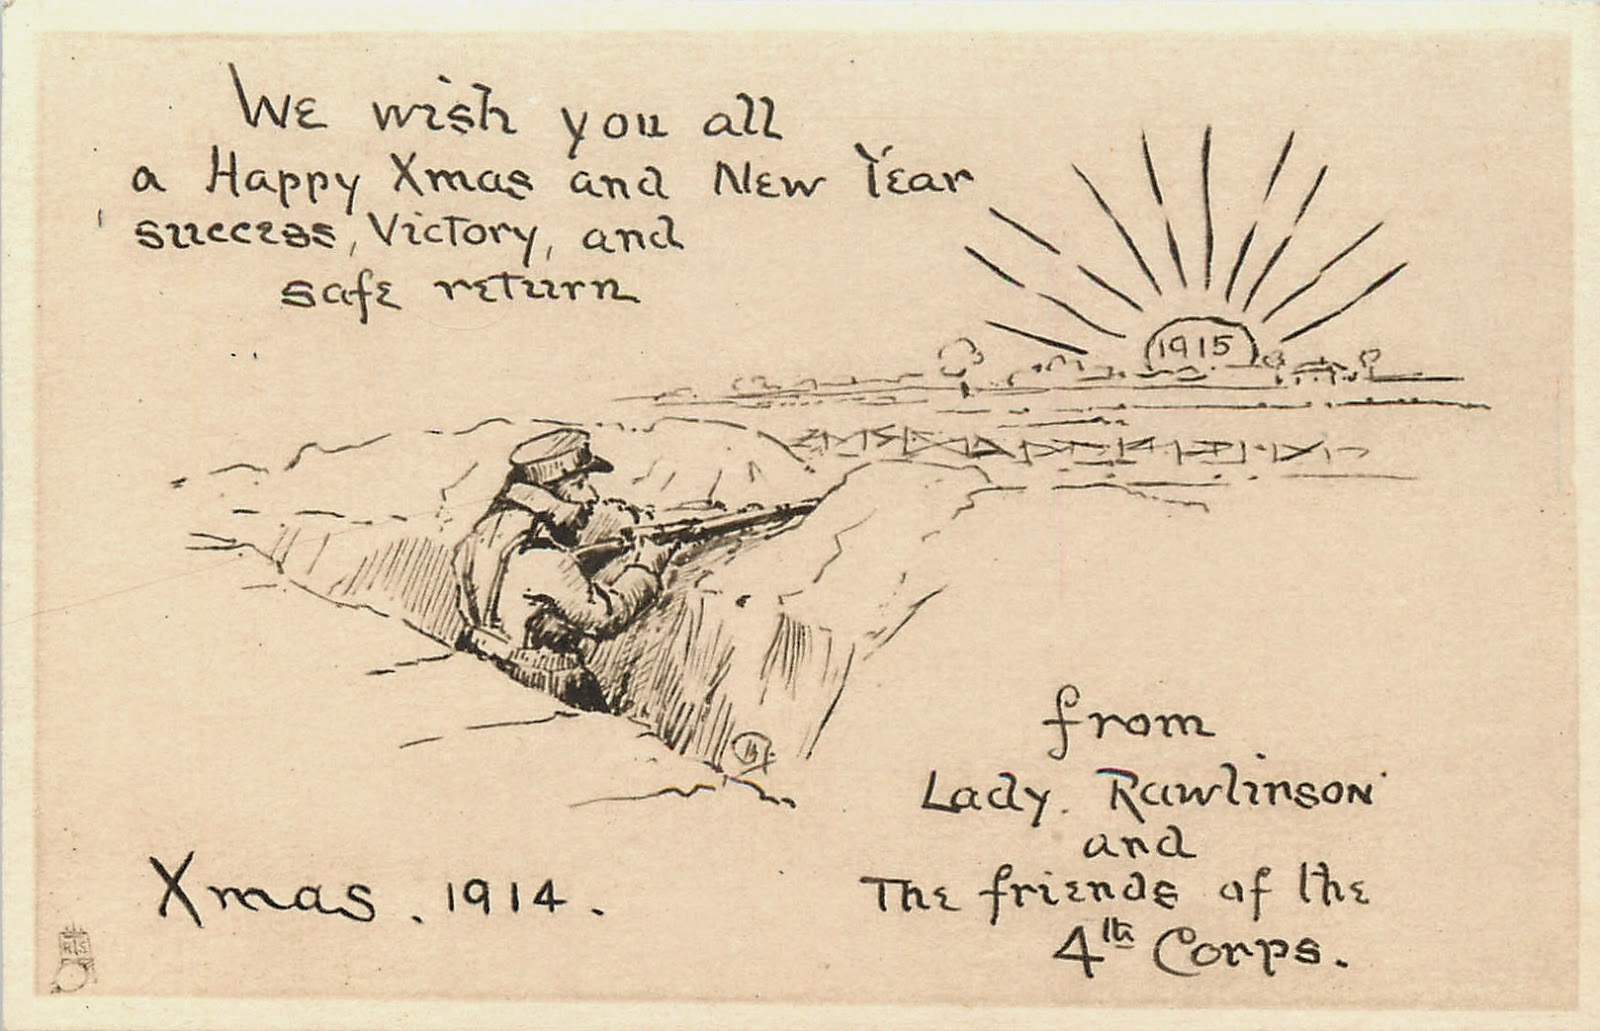 We wish you all
a Happy Xmas and New Year
success, Victory, and
safe return
1915
from
Lady. Rawlinson
and
The friends of the
4th Corps.
Xmas. 1914.